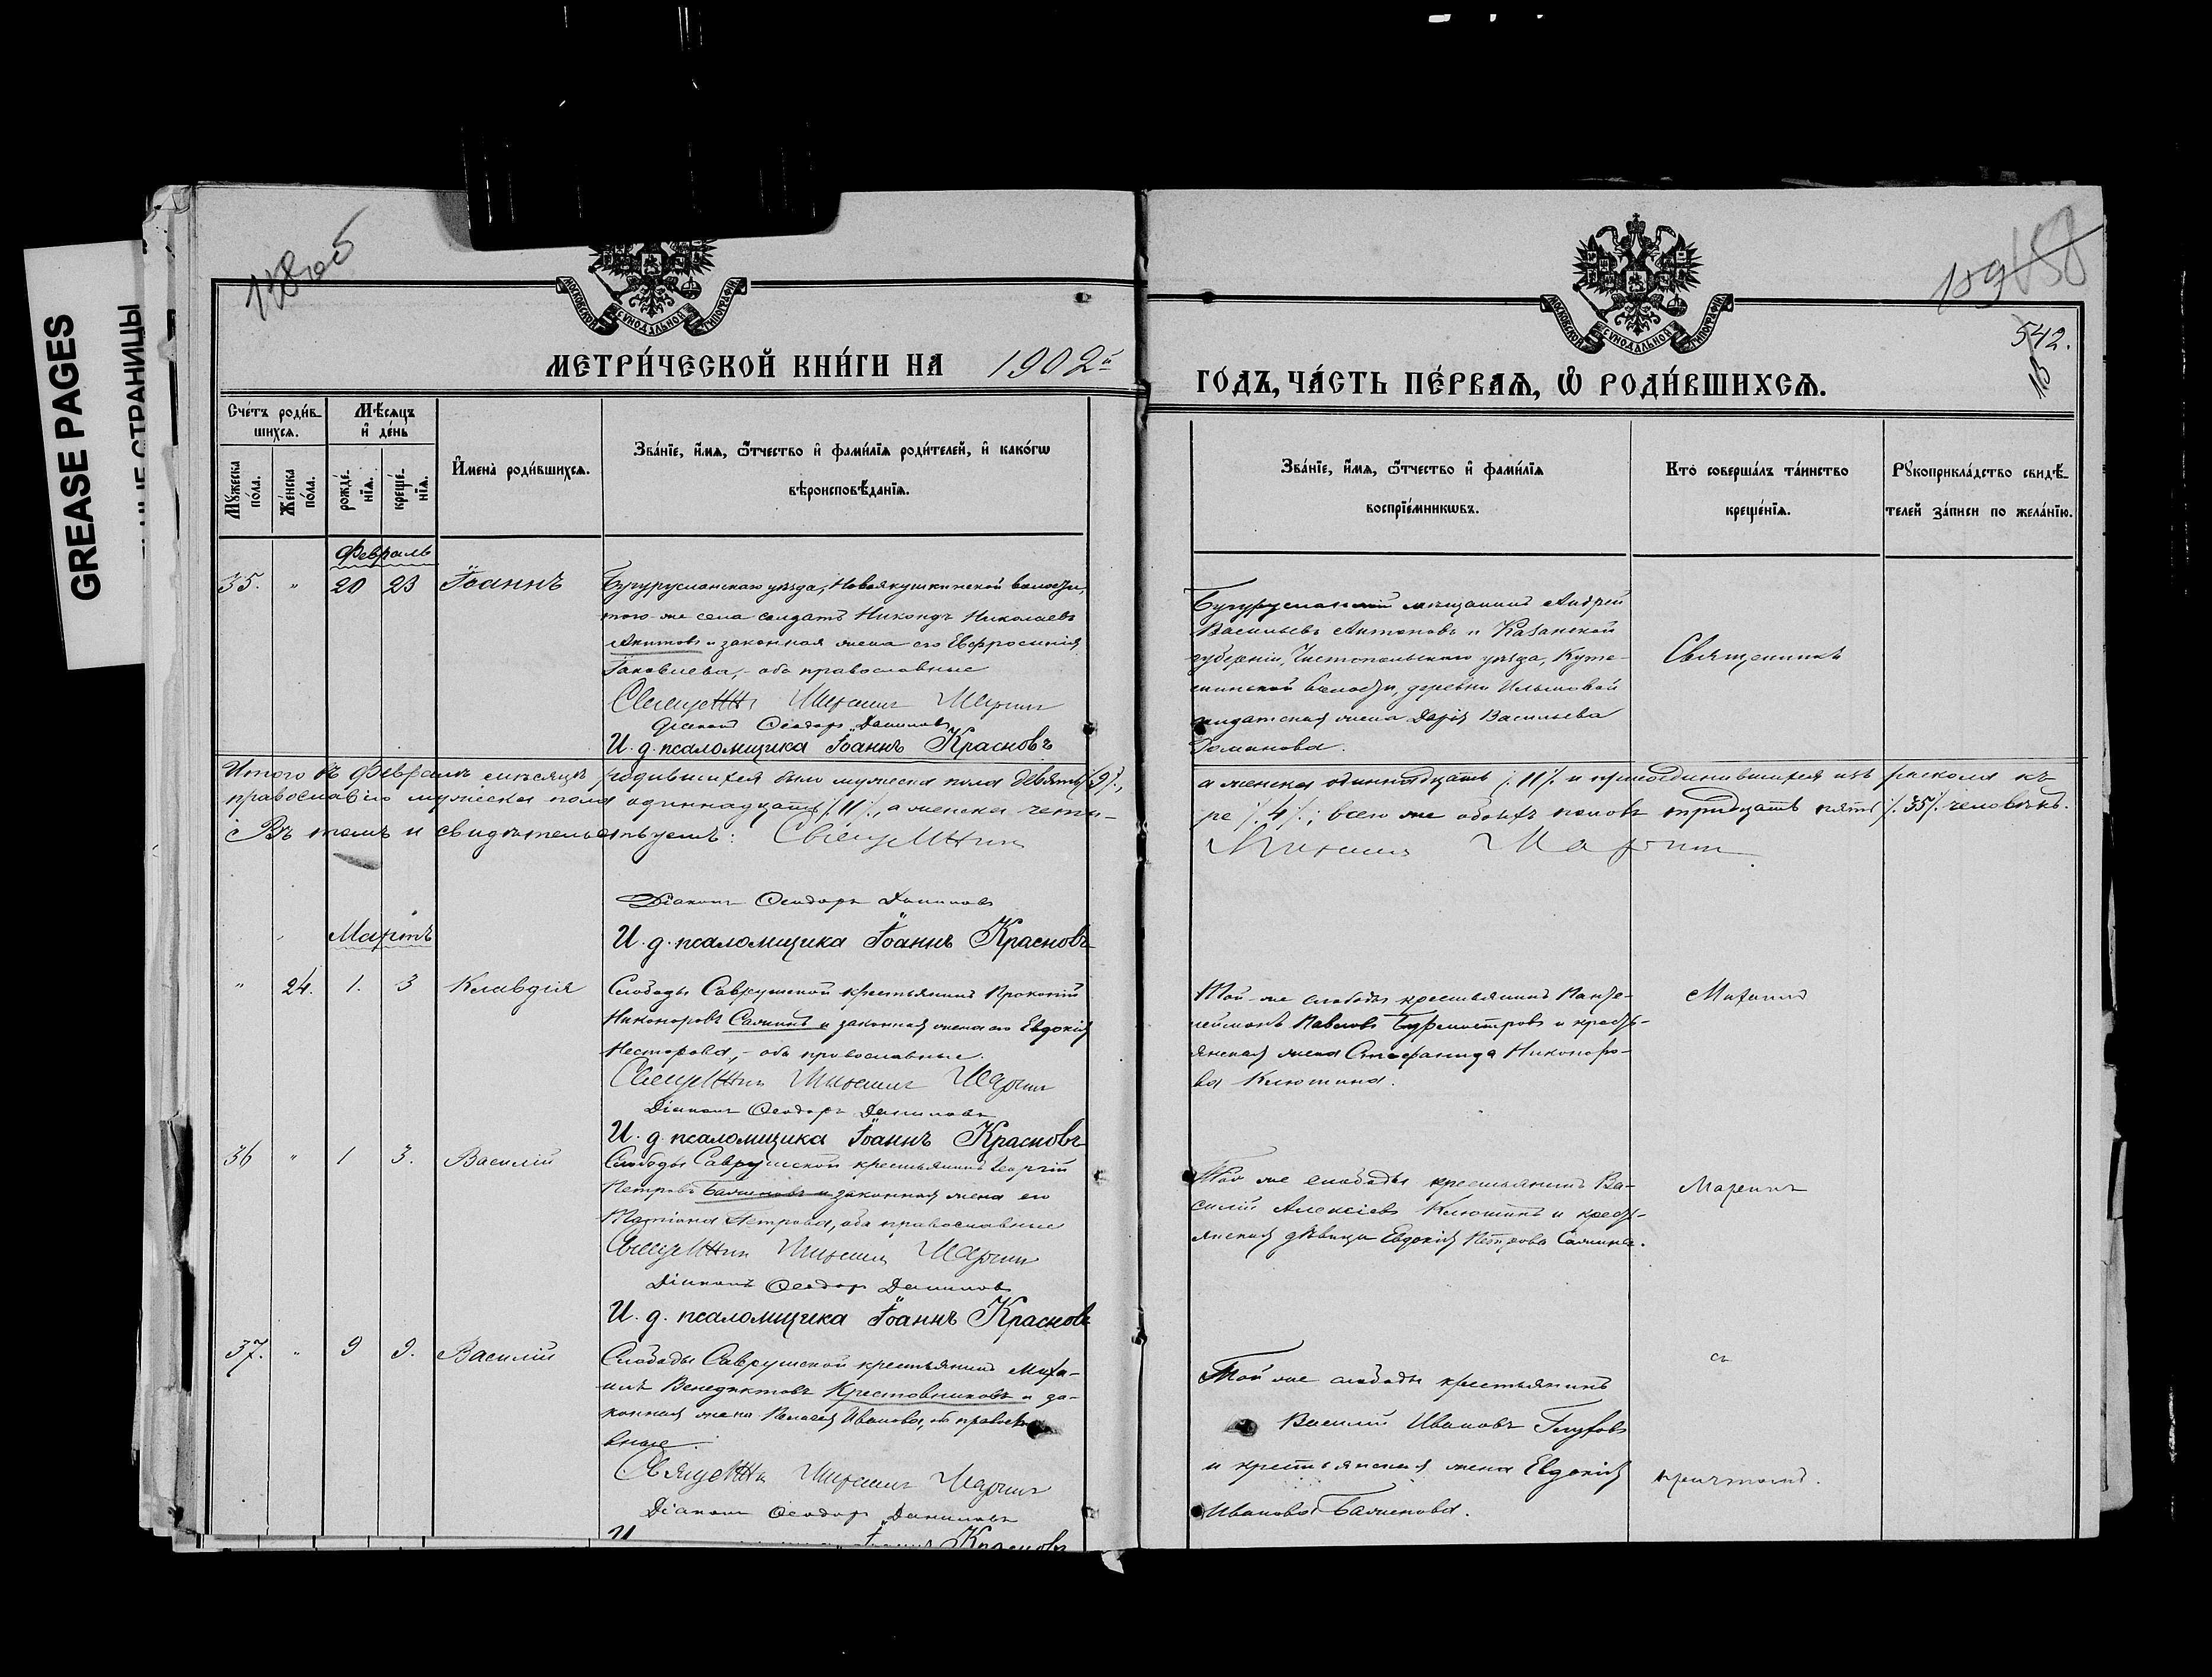 GREASE PAGES
СТРАНИЦЫ
159
542.
МОСКОВСКОЙ СУНОДАЛЬНОЙ ТИПОГРАФІИ
МОСКОВСКОЙ СУНОДАЛЬНОЙ ТИПОГРАФІИ
МЕТРИ́ЧЕСКОЙ КНИ́ГИ НА 1902й
ГО́ДЪ, ЧА́СТЬ ПЕ́РВАѦ, Ѡ҆ РОДИ́ВШИХСѦ.
Сче́тъ роди́в-
шихсѧ.
Мꙋ́жеска
по́ла.
Же́нска
по́ла.
Мѣ́сяцъ
и҆ де́нь
рожде́-
нїѧ.
креще́-
нїѧ.
И҆мена̀ роди́вшихсѧ.
Зва́нїе, и҆́мѧ, ѻ҆́тчество и҆ фами́лїѧ роди́телей, и҆ како́гѡ
вѣроисповѣ́данїѧ.
Зва́нїе, и҆́мѧ, ѻ҆́тчество и҆ фами́лїѧ
воспрїе́мникѡвъ.
Кто̀ соверша́лъ та́инство
креще́нїѧ.
Рꙋкоприкла́дство свидѣ́-
телей за́писи по жела́нїю.
Февраль
35. " 20 23 Іоаннъ
Бугурусланскаго уѣзда, Новоякушкинской волости,
того-же села солдатъ Никондъ Николаевъ
Акитовъ и законная жена его Евфросинія
Іаковлева, - оба православные
Священник Михаил Марин
Діакон Ѳеодоръ Даниловъ
И. д. псаломщика Іоаннъ Красновъ
Бугурусланскій мѣщанинъ Андрей
Васильевъ Антоновъ и Казанской
губерніи, Чистопольскаго уѣзда, Куте-
минской волости, деревни Ильмовой
солдатская жена Дарія Васильева
Романова.
Священникъ
Итого въ Февралѣ мѣсяцѣ родившихся было мужеска пола девять /.9/.,
а женска одиннадцать /.11/. и присоединившихся изъ раскола къ
православію мужеска пола одиннадцать /.11/., а женска четы-
ре /.4/.; всего же обоихъ половъ тридцать пять /.35/. человѣкъ.
Въ томъ и свидѣтельствуемъ: Священник
Михаил Марин
Діаконъ Ѳеодоръ Даниловъ
И. д. псаломщика Іоаннъ Красновъ
Мартъ
" 24. 1. 3 Клавдія
Слободы Саврушской крестьянинъ Прокопій
Никоноровъ Салминъ и законная жена его Евдокія
Несторова, - оба православные.
Священник Михаил Марин
Діаконъ Ѳеодоръ Даниловъ
И. д. псаломщика Іоаннъ Красновъ
Той-же слободы крестьянинъ Панте-
леймонъ Павловъ Бурмистровъ и кресть-
янская жена Стефанида Никоноро-
ва Клютина.
Михаилъ
36 " 1 3. Василій
Слободы Саврушской крестьянинъ Георгій
Петровъ Балменовъ и законная жена его
Матрона Петрова, оба православные
Священник Михаил Марин
Діаконъ Ѳеодоръ Даниловъ
И. д. псаломщика Іоаннъ Красновъ
Той же слободы крестьянинъ Ва-
силій Алексіевъ Клютинъ и кресть-
янская дѣвица Евдокія Петрова Салмина.
Маринъ
37. " 9 9. Василій
Слободы Саврушской крестьянинъ Миха-
илъ Венедиктовъ Крестовниковъ и за-
конная жена Пелагея Иванова, оба правосла
вные.
Священник Михаил Марин
Діаконъ Ѳеодоръ Даниловъ
Той же слободы крестьянинъ
Василій Ивановъ Глуховъ
и крестьянская жена Евдокія
Иванова Балменова.
съ
причтомъ.